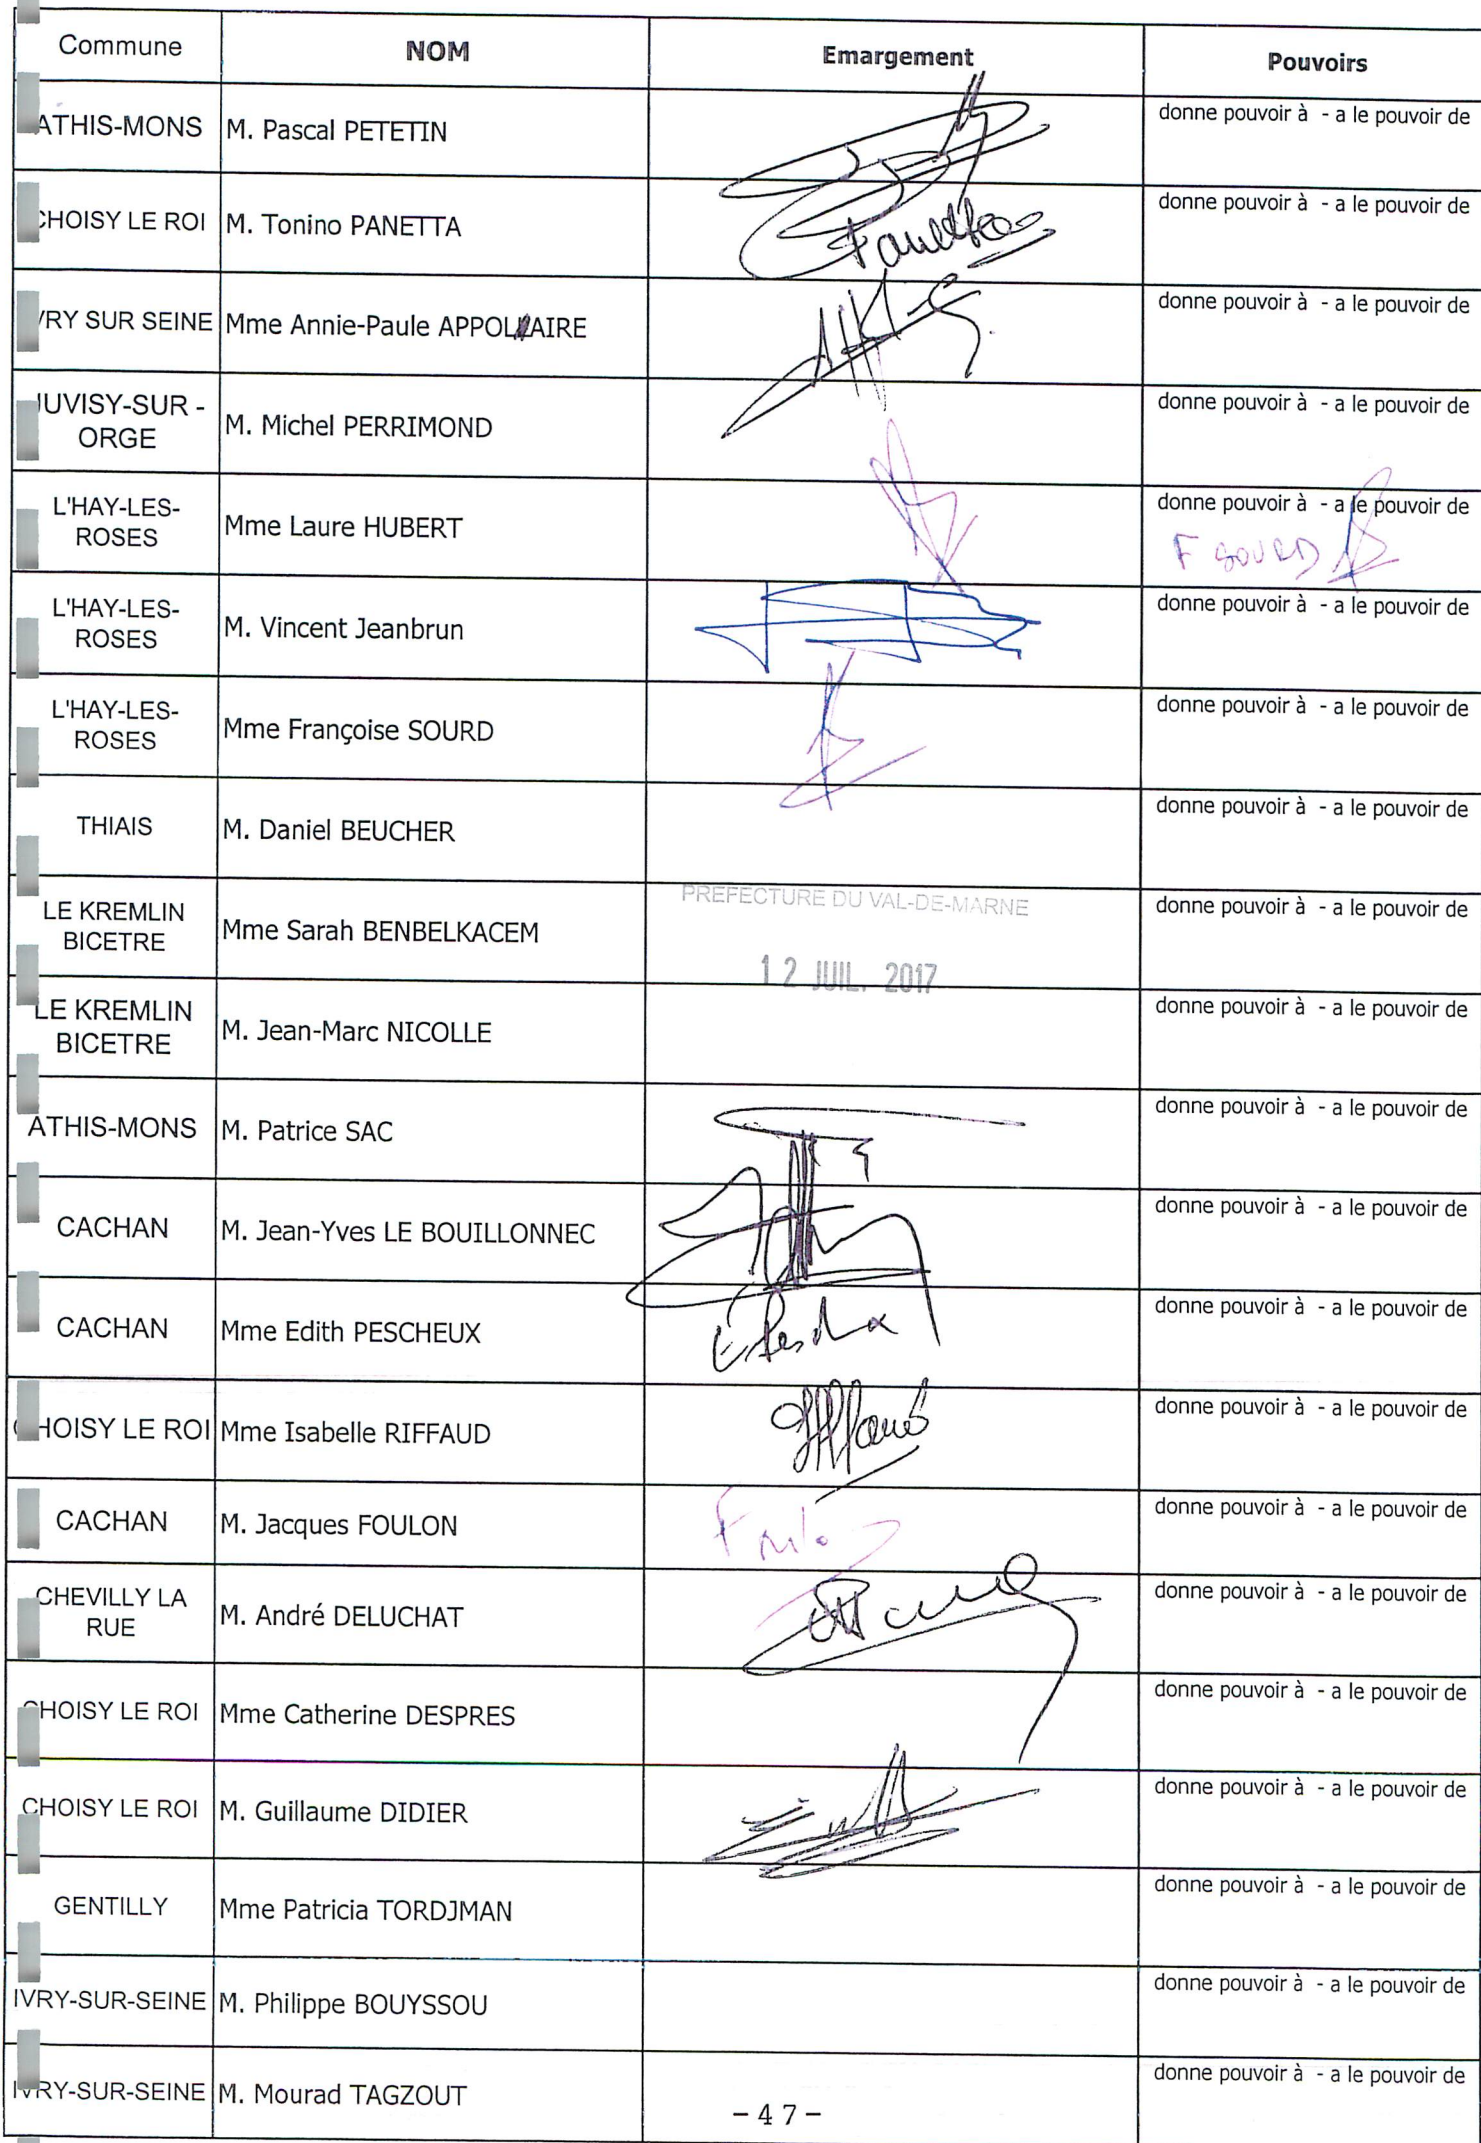 Commune NOM Emargement Pouvoirs
ATHIS-MONS M. Pascal PETETIN donne pouvoir à - a le pouvoir de
CHOISY LE ROI M. Tonino PANETTA Panetta donne pouvoir à - a le pouvoir de
IVRY SUR SEINE Mme Annie-Paule APPOLINAIRE donne pouvoir à - a le pouvoir de
JUVISY-SUR -
ORGE M. Michel PERRIMOND donne pouvoir à - a le pouvoir de
L'HAY-LES-
ROSES Mme Laure HUBERT donne pouvoir à - a le pouvoir de
F SOURD
L'HAY-LES-
ROSES M. Vincent Jeanbrun donne pouvoir à - a le pouvoir de
L'HAY-LES-
ROSES Mme Françoise SOURD donne pouvoir à - a le pouvoir de
THIAIS M. Daniel BEUCHER donne pouvoir à - a le pouvoir de
PREFECTURE DU VAL-DE-MARNE
LE KREMLIN
BICETRE Mme Sarah BENBELKACEM donne pouvoir à - a le pouvoir de
12 JUIL. 2017
LE KREMLIN
BICETRE M. Jean-Marc NICOLLE donne pouvoir à - a le pouvoir de
ATHIS-MONS M. Patrice SAC donne pouvoir à - a le pouvoir de
CACHAN M. Jean-Yves LE BOUILLONNEC donne pouvoir à - a le pouvoir de
CACHAN Mme Edith PESCHEUX donne pouvoir à - a le pouvoir de
CHOISY LE ROI Mme Isabelle RIFFAUD donne pouvoir à - a le pouvoir de
CACHAN M. Jacques FOULON donne pouvoir à - a le pouvoir de
CHEVILLY LA
RUE M. André DELUCHAT donne pouvoir à - a le pouvoir de
CHOISY LE ROI Mme Catherine DESPRES donne pouvoir à - a le pouvoir de
CHOISY LE ROI M. Guillaume DIDIER donne pouvoir à - a le pouvoir de
GENTILLY Mme Patricia TORDJMAN donne pouvoir à - a le pouvoir de
IVRY-SUR-SEINE M. Philippe BOUYSSOU donne pouvoir à - a le pouvoir de
IVRY-SUR-SEINE M. Mourad TAGZOUT donne pouvoir à - a le pouvoir de
-47-